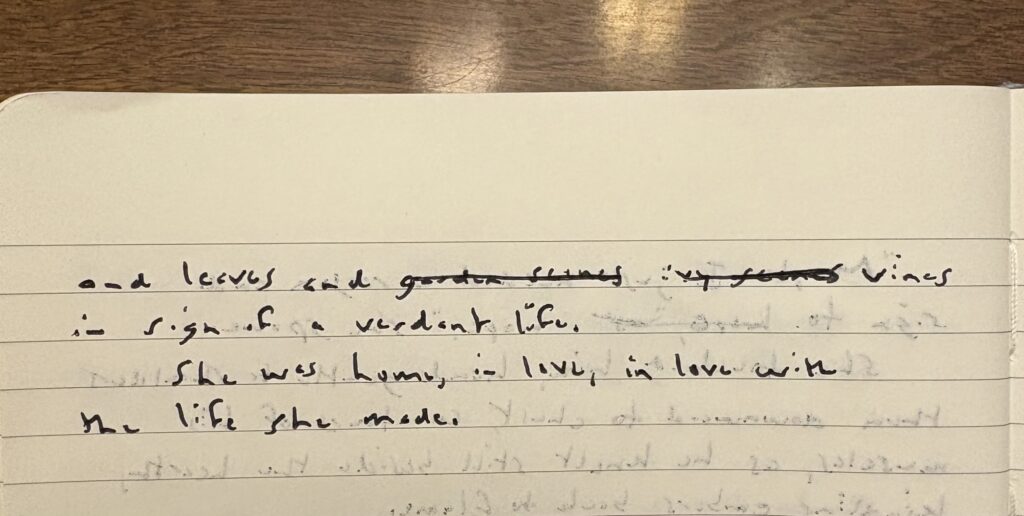 and leaves and garden scenes ivy scenes vines
in sign of a verdant life.
She was home, in love, in love with
the life she made.